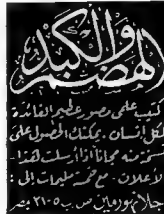 الهضم والكبد
كتيب علمى مصور عظيم الفائدة
لكل انسان . يمكنك الحصول على
نسخة منه مجاناً اذا أرسلت هذا
الاعلان . مع خمسة مليمات الى :
جلانجورمين ص . ب ٢١٠٥ مصر